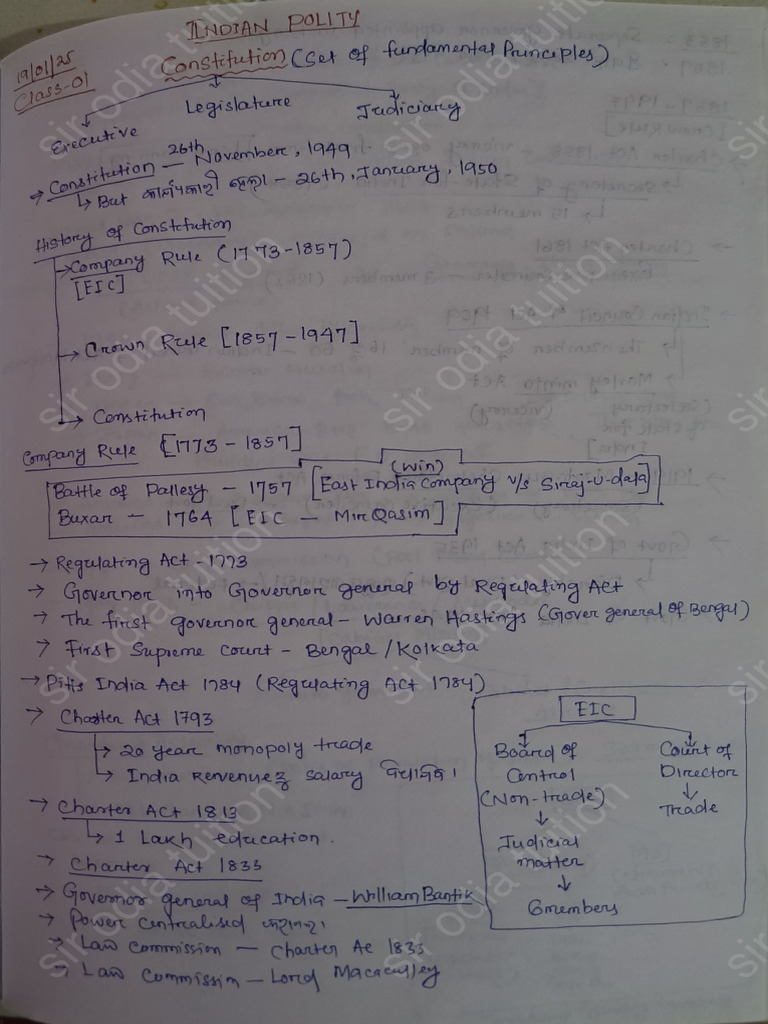 INDIAN POLITY
19/01/25
Class-01
Constitution (Set of fundamental Principles)
Executive
Legislature
Judiciary
→ Constitution - 26th November, 1949
↳ But କାର୍ଯ୍ୟକାରୀ ହେଲା - 26th, January, 1950
History of Constitution
→ Company Rule (1773-1857)
[EIC]
→ Crown Rule [1857-1947]
→ Constitution
Company Rule [1773-1857]
(Win)
Battle of Pallesy - 1757 [East India Company v/s Siraj-u-dala]
Buxar - 1764 [EIC - Mir Qasim]
→ Regulating Act - 1773
→ Governor into Governor general by Regulating Act
→ The first governor general - Warren Hastings (Gover general of Bengal)
→ First Supreme court - Bengal / Kolkata
→ Pitis India Act 1784 (Regulating Act 1784)
→ Charter Act 1793
↳ 20 year monopoly trade
↳ India Revenue ରୁ salary ଦିଆଯିବ।
→ Charter Act 1813
↳ 1 Lakh education.
→ Charter Act 1833
→ Governor general of India - William Bantik
→ Power centralised
→ Law Commission - Charter Ac 1833
→ Law Commission - Lord Macaculley
EIC
Board of Control (Non-trade)
↓
Judicial matter
↓
6 members
Court of Director
↓
Trade
sir odia tuition